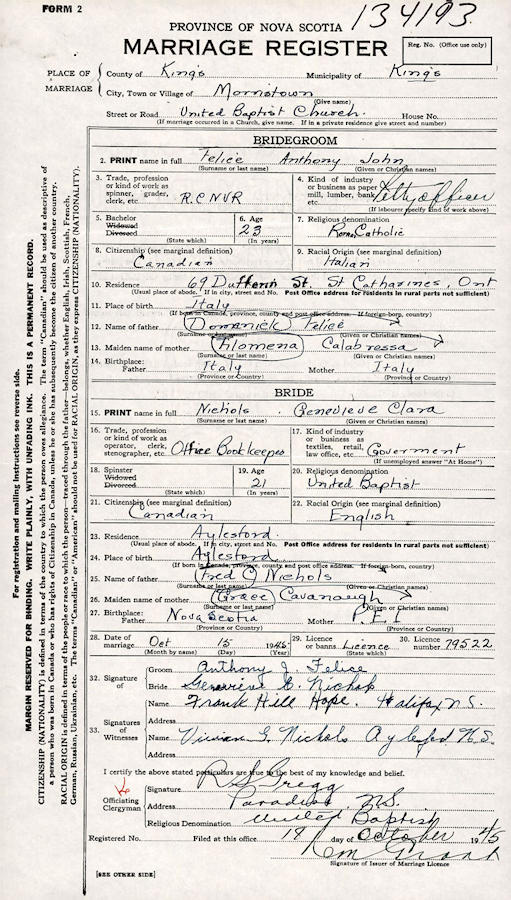 FORM 2
134193
PROVINCE OF NOVA SCOTIA
MARRIAGE REGISTER
Reg. No. (Office use only)
PLACE OF MARRIAGE
County of King's Municipality of King's
City, Town or Village of Morristown
(Give name)
Street or Road United Baptist Church. House No.
(If marriage occurred in a Church, give name. If in a private residence give street and number)
BRIDEGROOM
2. PRINT name in full Felice Anthony John
(Surname or last name) (Given or Christian names)
3. Trade, profession or kind of work as spinner, grader, clerk, etc. R.C.N.V.R
4. Kind of industry or business as paper mill, lumber, bank, etc. Petty officer
(If labourer specify kind of work above)
5. Bachelor Widowed Divorced
(State which)
6. Age 23
(In years)
7. Religious denomination
Roman Catholic
8. Citizenship (see marginal definition)
Canadian
9. Racial Origin (see marginal definition)
Italian
10. Residence 69 Dufferin St. St Catharines, Ont
(Usual place of abode. If in city, street and No. Post Office address for residents in rural parts not sufficient)
11. Place of birth Italy
(If born in Canada, province, county and post office address. If foreign-born, country)
12. Name of father Domanick Felice
(Surname or last name) (Given or Christian names)
13. Maiden name of mother Filomena Calabressa
(Surname or last name) (Given or Christian names)
14. Birthplace: Father Italy Mother Italy
(Province or Country) (Province or Country)
BRIDE
15. PRINT name in full Nichols Genevieve Clara
(Surname or last name) (Given or Christian names)
16. Trade, profession or kind of work as operator, clerk, stenographer, etc. Office Bookkeeper
17. Kind of industry or business as textiles, retail, law office, etc. Goverment
(If unemployed answer "At Home")
18. Spinster Widowed Divorced
(State which)
19. Age 21
(In years)
20. Religious denomination
United Baptist
21. Citizenship (see marginal definition)
Canadian
22. Racial Origin (see marginal definition)
English
23. Residence Aylesford.
(Usual place of abode. If in city, street and No. Post Office address for residents in rural parts not sufficient)
24. Place of birth Aylesford
(If born in Canada, province, county and post office address. If foreign-born, country)
25. Name of father Fred O Nichols
(Surname or last name) (Given or Christian names)
26. Maiden name of mother Grace Cavanaugh
(Surname or last name) (Given or Christian names)
27. Birthplace: Father Nova Scotia Mother P.E.I
(Province or Country) (Province or Country)
28. Date of marriage Oct 15 1945
(Month by name) (Day) (Year)
29. Licence or banns Licence
30. Licence number 79522
32. Signature of
Groom Anthony J. Felice
Bride Genevieve C. Nichols
33. Signatures of Witnesses
Name Frank Hill Hope. Halifax N.S.
Address
Name Vivian G. Nichols Aylesford N.S.
Address
I certify the above stated particulars are true to the best of my knowledge and belief.
Officiating Clergyman
Signature R S Gregg
Address Paradise N.S.
Religious Denomination United Baptist
Registered No. Filed at this office 18 day of October 1945
Signature of Issuer of Marriage Licence
[SEE OTHER SIDE]
For registration and mailing instructions see reverse side.
MARGIN RESERVED FOR BINDING. WRITE PLAINLY, WITH UNFADING INK. THIS IS A PERMANENT RECORD.
CITIZENSHIP (NATIONALITY) is defined in terms of the country to which the person owes allegiance. The term "Canadian" should be used as descriptive of a person who was born in Canada or who has rights of Citizenship in Canada, unless he or she has subsequently become the citizen of another country.
RACIAL ORIGIN is defined in terms of the people or race to which the person—traced through the father—belongs, whether English, Irish, Scottish, French, German, Russian, Ukrainian, etc. The terms "Canadian" or "American" should not be used for RACIAL ORIGIN, as they express CITIZENSHIP (NATIONALITY).